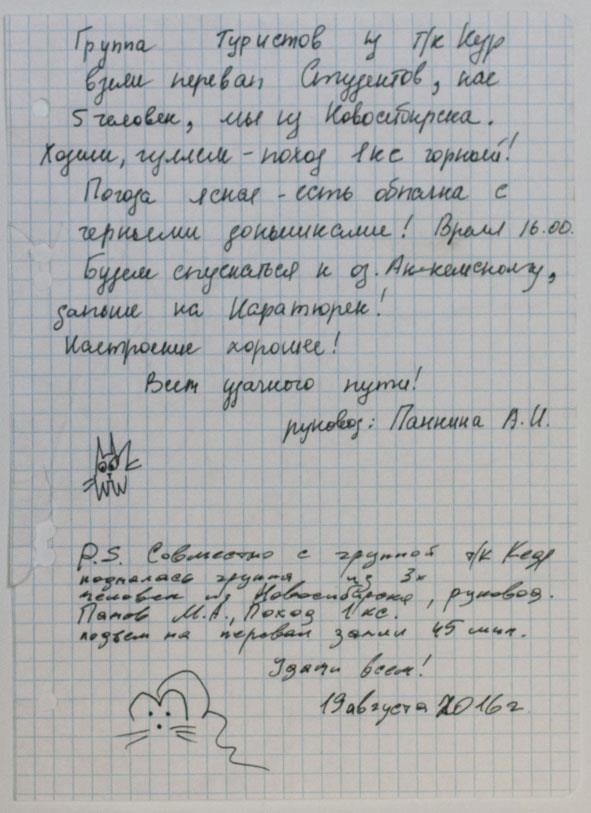 Группа Туристов из т/к Кедр
взяли перевал Студентов, нас
5 человек, мы из Новосибирска.
Ходили, гуляем - поход 1 кс горный!
Погода ясная - есть облака с
черными донышками! Время 16.00.
Будем спускаться к оз. Ак-кемскому,
дальше на Каратюрек!
Настроение хорошее!
Всем удачного пути!
руковод: Панкина А.И.
P.S. Совместно с группой т/к Кедр
поднялась группа из 3х
человек из Новосибирска, руковод.
Панов М.А., Поход 1 кс.
подъем на перевал занял 45 мин.
Удачи всем!
19 августа 2016 г.